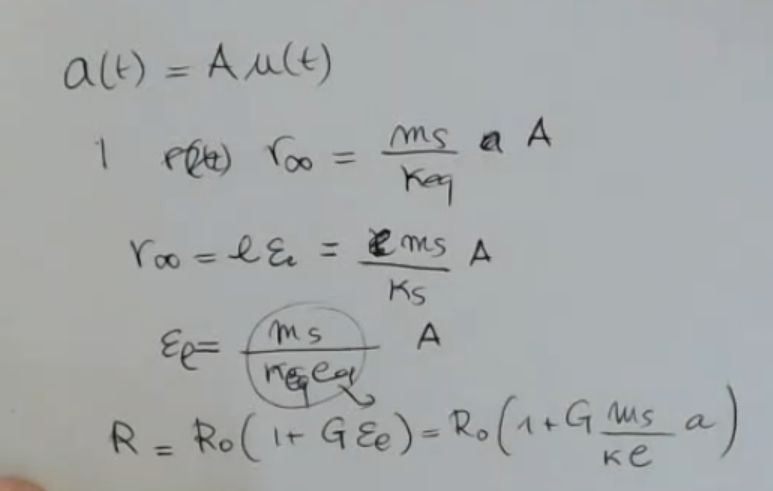 a(t) = A u(t)
1 r(t) r∞ = ms/Keq a A
r∞ = l εl = ms/Ks A
εl = ms/Keq A
R = R0(1 + G εl) = R0(1 + G ms/Kl a)